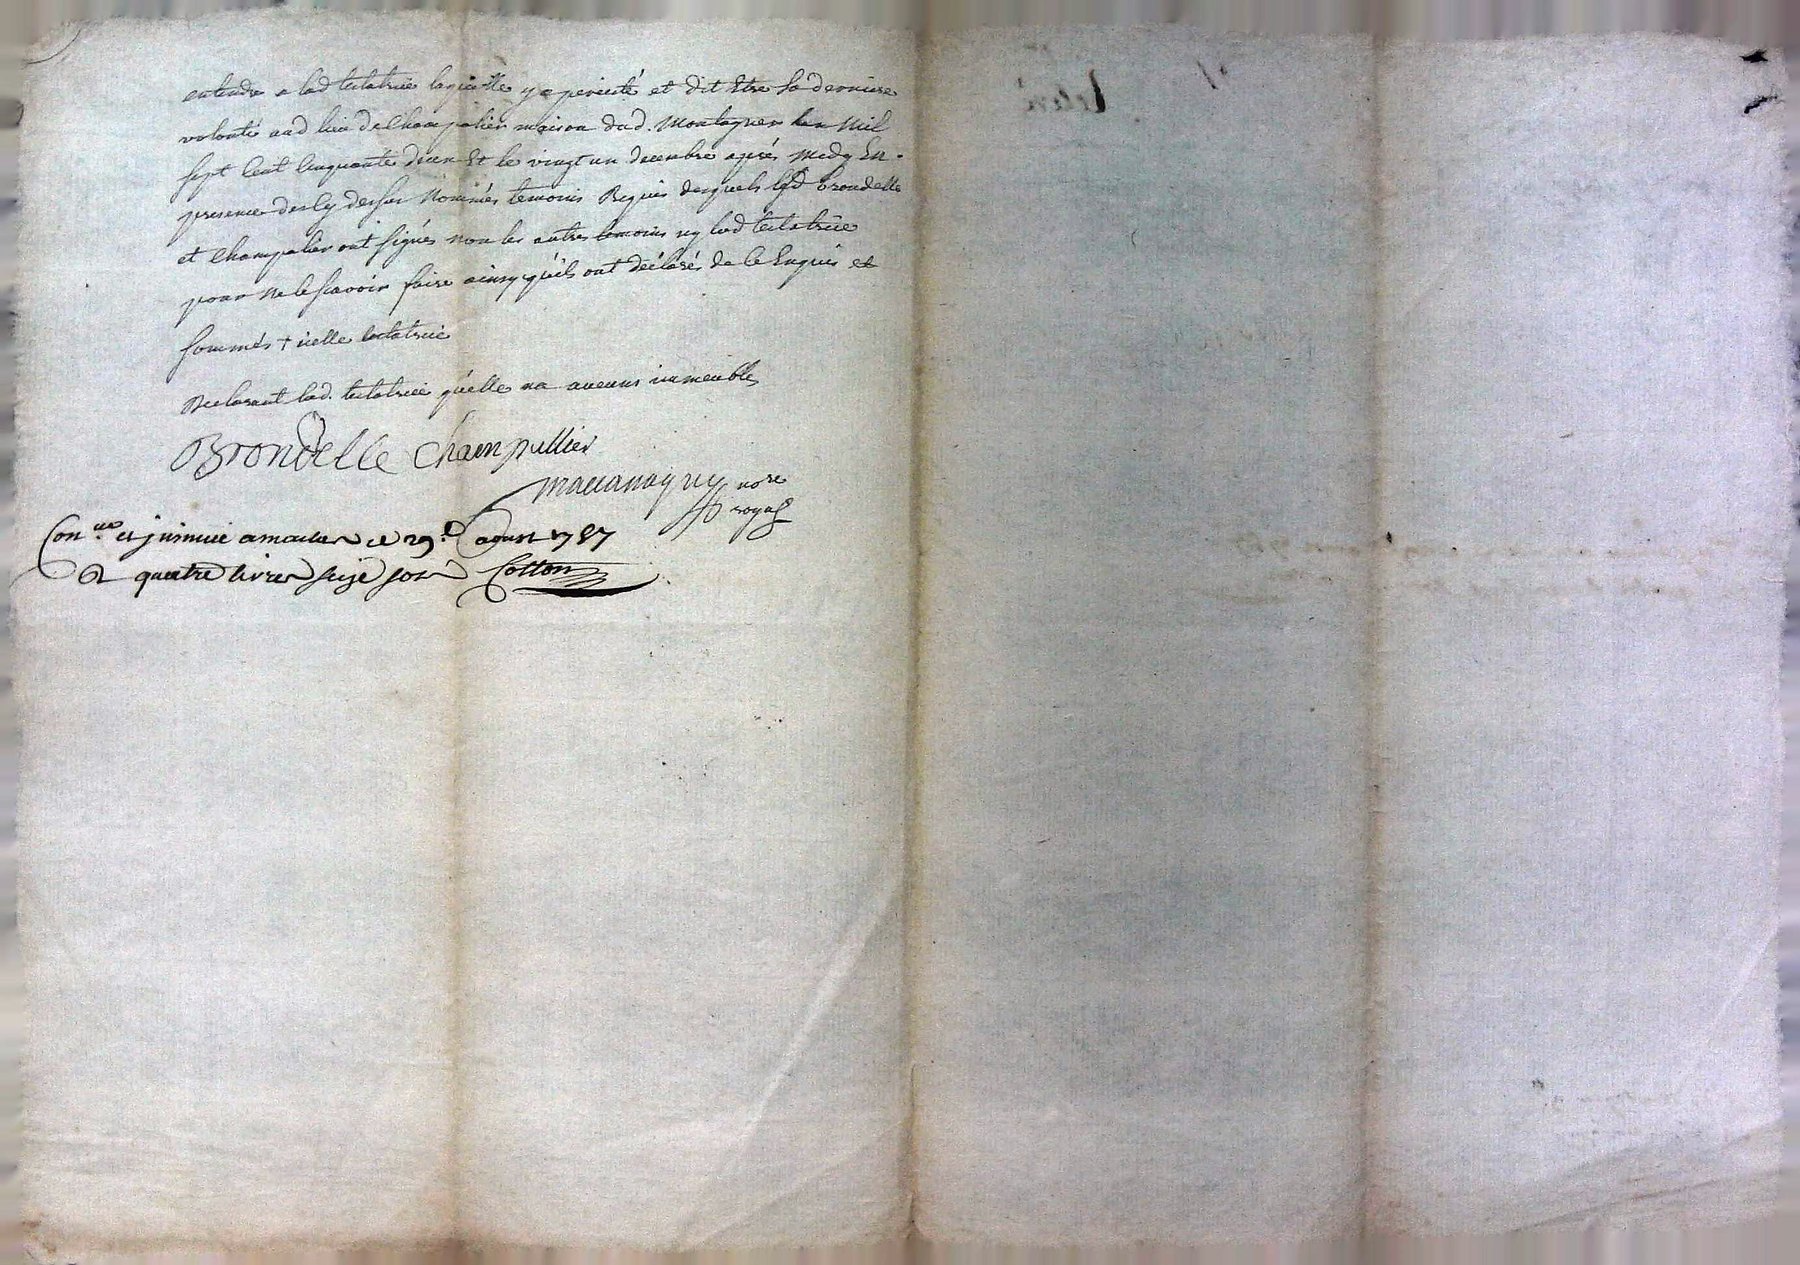 entendre a lad testatrice laquelle y a percisté et dit Etre sa derniere
volonté aud lieu de Champalier maison dud. Montagner Lan Mil
sept Cent Cinquante deux Et le vingt un decembre aprés Midy En
presence des Cy dessus Nommés temoins Requis desquels lesd Brondelle
et Champalier ont signés non les autres temoins ny lad testatrice
pour ne le scavoir faire ainsy qu'ils ont declarés de ce Enquis et
sommés + icelle testatrice
Declarant lad. testatrice quelle na aucuns immeubles
BronDelle Champallier
nore
royal
Con.lle et jnsinué a ce 29.e aoust 1787
quatre livres seize sols Cotton